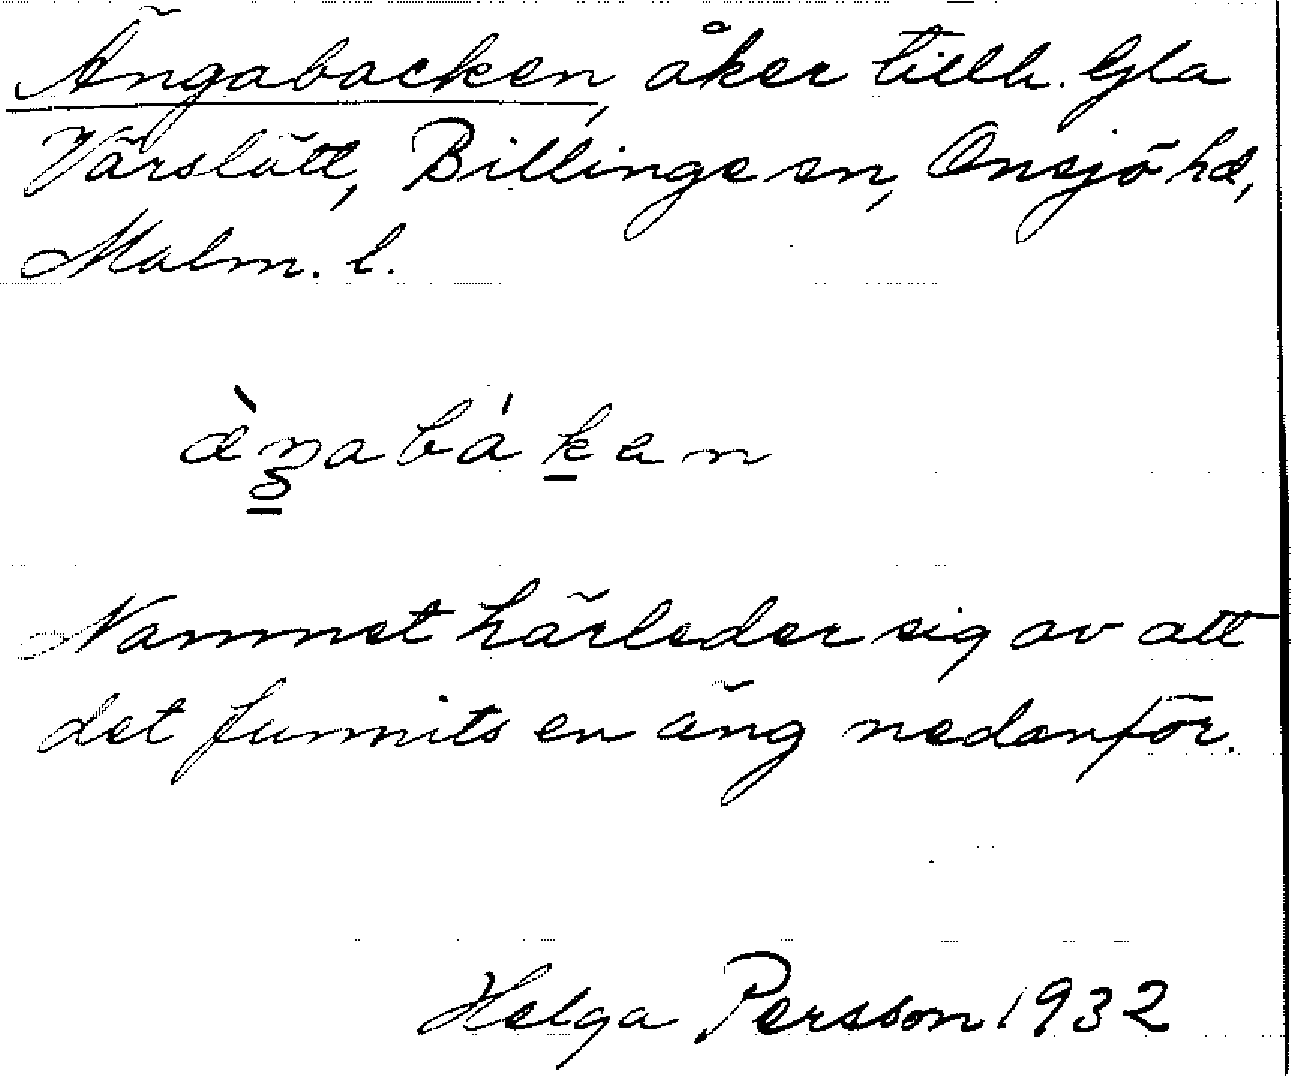 Ängabacken, åker tillh. Gla
Värslätt, Billinge sn, Onsjö hd,
Malm. l.
æ̀ŋabákan
Namnet härleder sig av att
det funnits en äng nedanför.
Helga Persson 1932